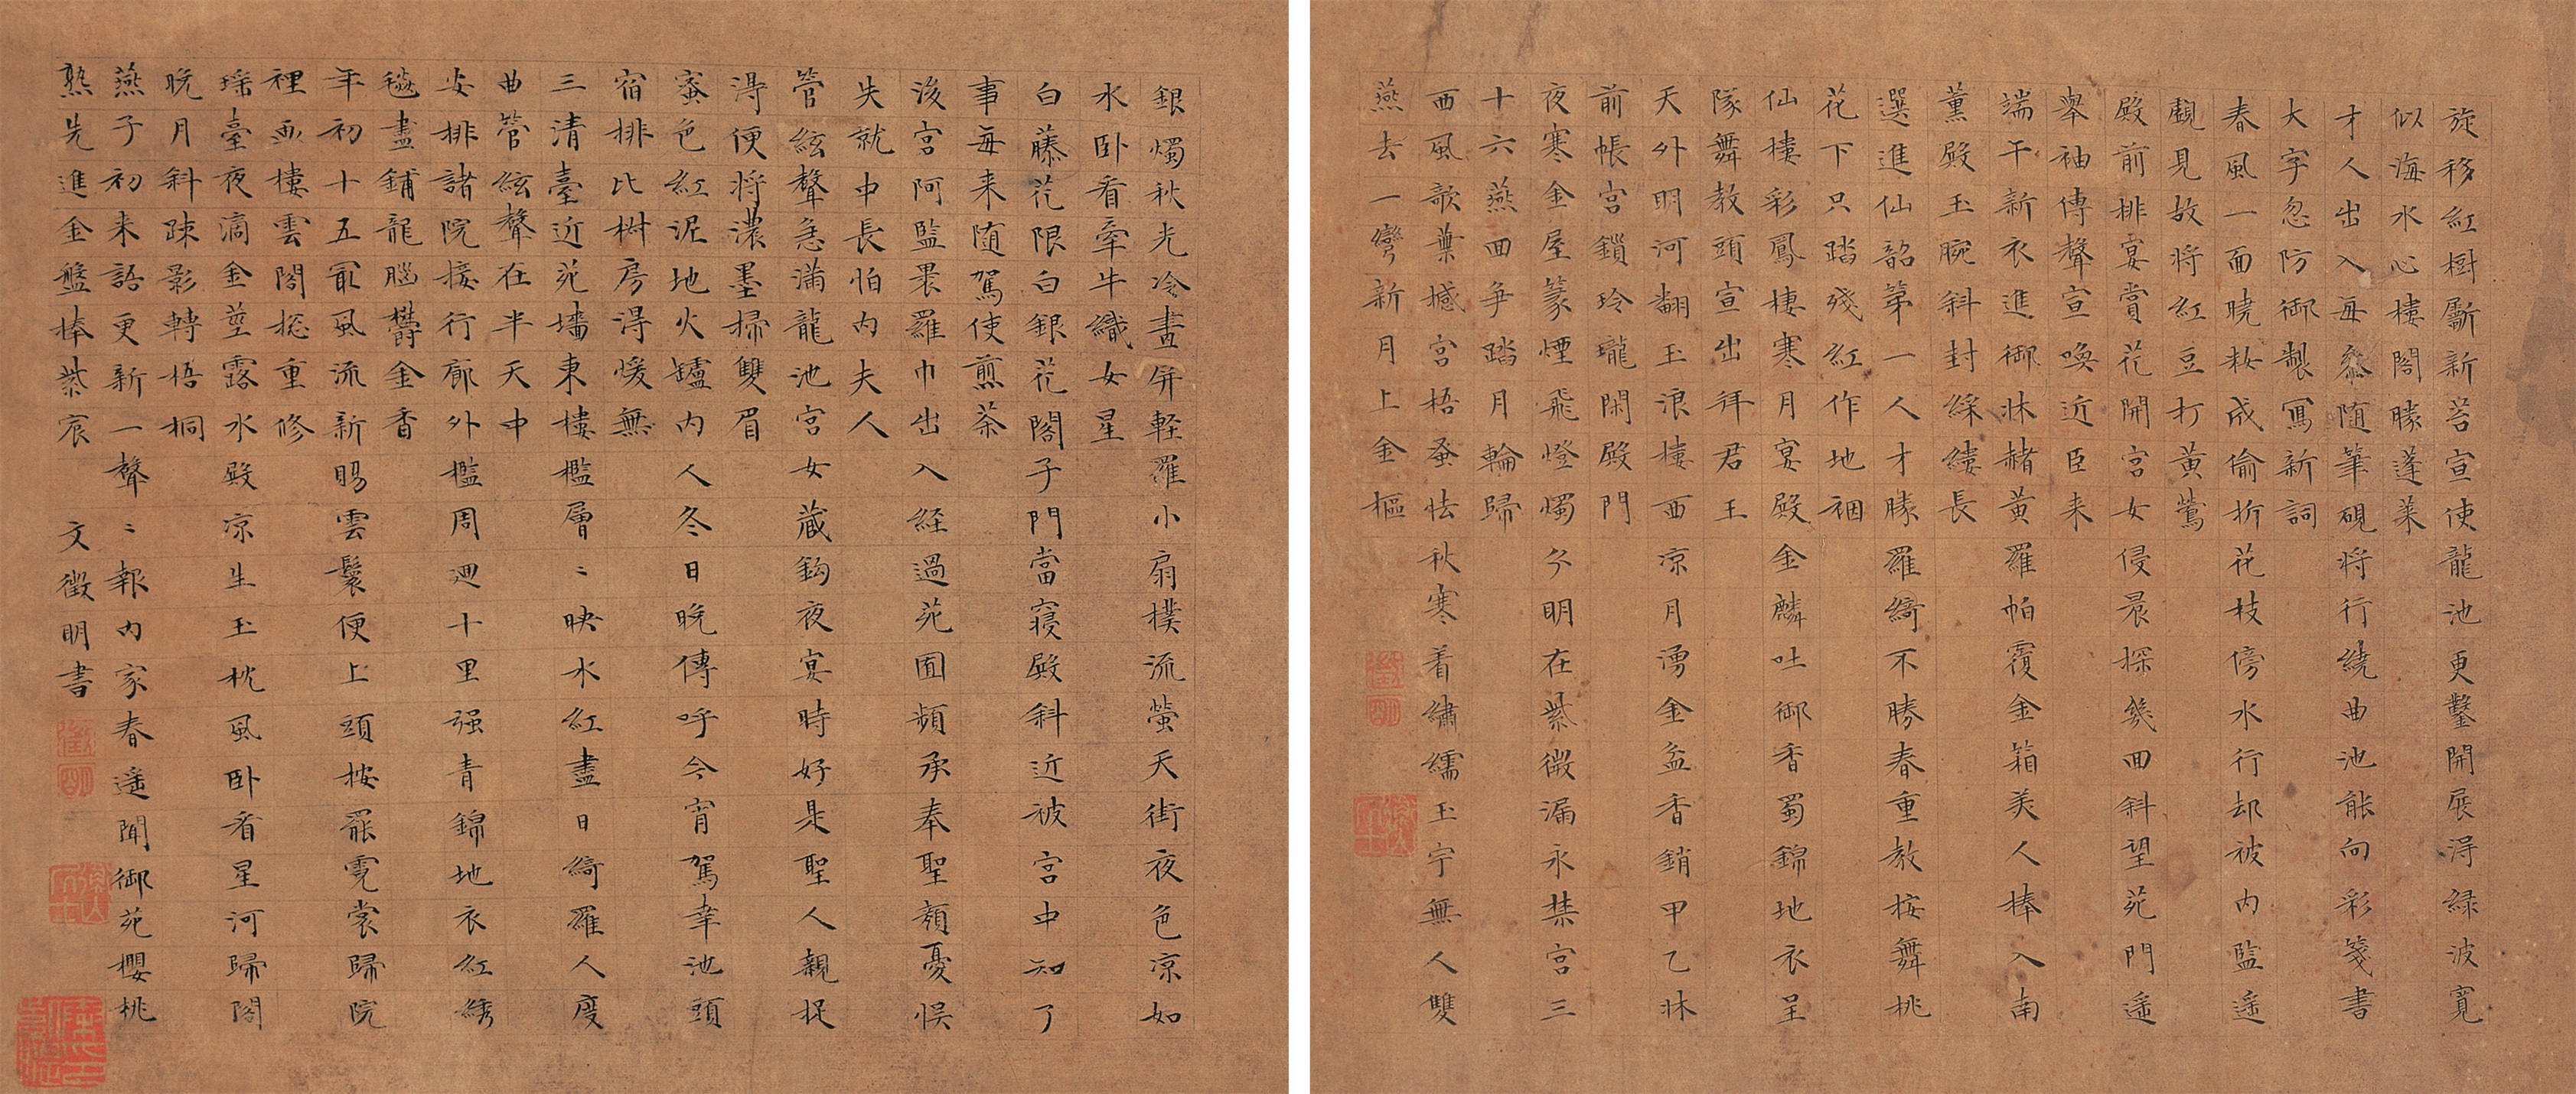 旋移紅樹斸新苔宣使龍池更鑿開展得緑波寬
似海水心樓閣勝蓬萊
才人出入每参随筆硯将行繞曲池能向彩箋書
大字忽防御製寫新詞
春風一面曉粧成偷折花枝傍水行却被內監遥
觀見故将紅豆打黄鶯
殿前排宴賞花開宮女侵晨探幾回斜望苑門遥
舉袖傳聲宣喚近臣来
端午新衣進御牀赭黄羅帕覆金箱美人捧入南
薰殿玉腕斜封綵縷長
選進仙韶第一人才勝羅綺不勝春重教按舞桃
花下只踏殘紅作地裀
仙樓彩鳳棲寒月宴殿金麟吐御香蜀錦地衣呈
隊舞教頭宣出拜君王
天外明河翻玉浪樓西凉月湧金盆香銷甲乙牀
前帳宮鎖玲瓏閑殿門
夜寒金屋篆煙飛燈燭分明在紫微漏永禁宮三
十六燕回争踏月輪歸
西風歌葉撼宮梧蚤怯秋寒着繡襦玉宇無人雙
燕去一彎新月上金樞
銀燭秋光冷畫屏輕羅小扇撲流螢天街夜色凉如
水卧看牽牛織女星
白藤花限白銀花閣子門當寢殿斜近被宮中知了
事每来随駕使煎茶
後宮阿監裹羅巾出入経過苑囿頻承奉聖顔憂悞
失就中長怕內夫人
管絃聲急滿龍池宮女藏鈎夜宴時好是聖人親捉
得便将濃墨掃雙眉
蜜色紅泥地火罏內人冬日晚傳呼今宵駕幸池頭
宿排比椒房得煖無
三清臺近苑墻東樓檻層〻映水紅盡日綺羅人度
曲管絃聲在半天中
安排諸院接行廊外檻周迴十里强青錦地衣紅綉
毯盡鋪龍腦欝金香
年初十五冣風流新賜雲鬟便上頭按罷霓裳歸院
裡畫樓雲閣捴重修
瑶臺夜滴金莖露水殿凉生玉枕風卧看星河歸閣
晚月斜踈影轉梧桐
燕子初来語更新一聲〻報內家春遥聞御苑櫻桃
熟先進金盤捧紫宸 文徵明書
徵明
徵明